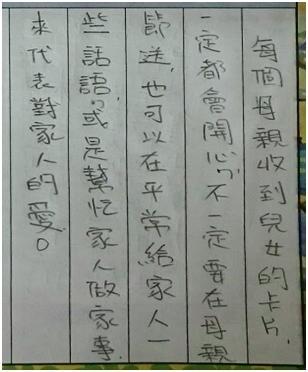 每個母親收到兒女的卡片，
一定都會開心，不一定要在母親
節送，也可以在平常給家人一
些話語，或是幫忙家人做家事，
來代表對家人的愛。